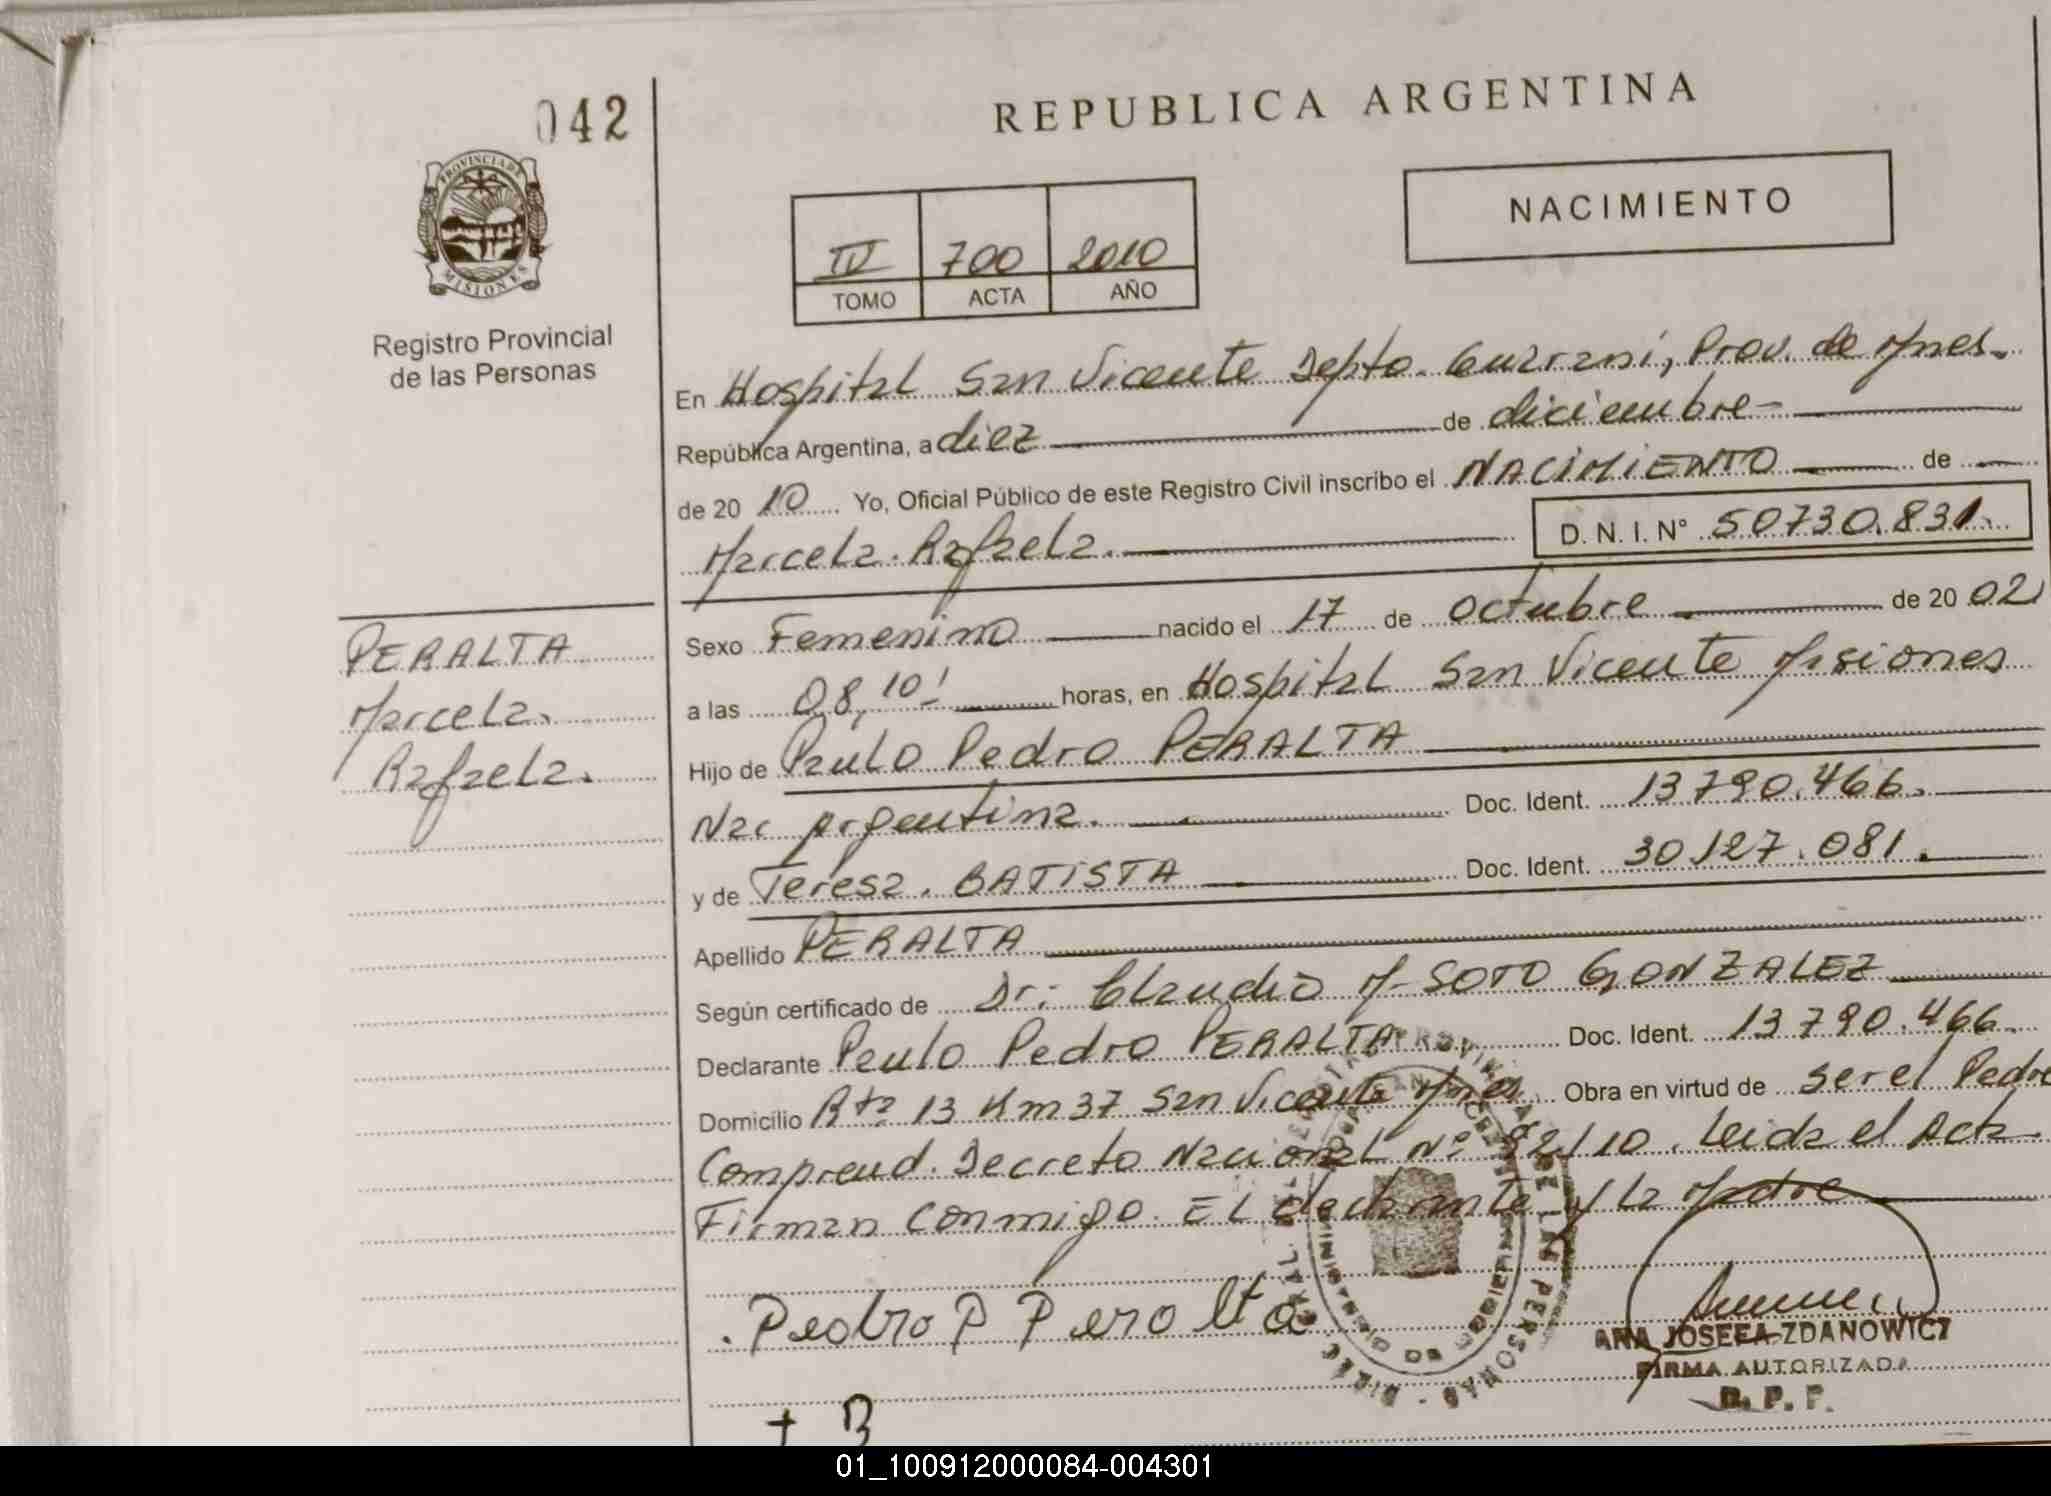 042
REPUBLICA ARGENTINA
PROVINCIA DE
MISIONES
Registro Provincial
de las Personas
NACIMIENTO
IV 700 2010
TOMO ACTA AÑO
En Hospital San Vicente Depto. Guarani, Prov. de Mnes.
República Argentina, a diez de diciembre
de 20 10 Yo, Oficial Público de este Registro Civil inscribo el NACIMIENTO de
Marcela Rafaela. D. N. I. N° 50730.831.
PERALTA
Marcela.
Rafaela.
Sexo Femenino nacido el 17 de octubre de 20 02
a las 08,10' horas, en Hospital San Vicente Misiones
Hijo de Paulo Pedro PERALTA
Nac Argentina. Doc. Ident. 13790.466.
y de Teresa. BATISTA Doc. Ident. 30127.081.
Apellido PERALTA
Según certificado de Dr. Claudio M. SOTO GONZALEZ
Declarante Paulo Pedro PERALTA Doc. Ident. 13790.466.
Domicilio Rta 13 Km 37 San Vicente Mnes. Obra en virtud de ser el Padre
Comprend. Decreto Nacional N° 92/10. Leida el Acta
Firman Conmigo. El declarante y la Madre
Pedro P Peralta
ANA JOSEFA ZDANOWICZ
FIRMA AUTORIZADA
T B
01_100912000084-004301